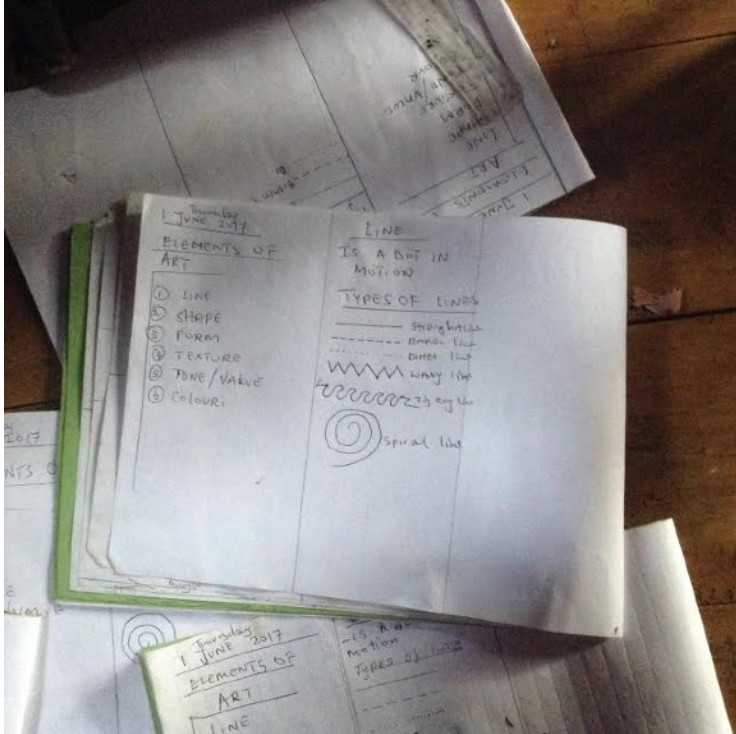 1 Thursday
JUNE 2017
ELEMENTS OF
ART
① LINE
② SHAPE
③ FORM
④ TEXTURE
⑤ TONE/VALUE
⑥ COLOUR.
LINE
IS A DOT IN
MOTION
TYPES OF LINES
straight line
Broken line
Dotted line
wavy line
zig zag line
spiral line
1 JUNE
ELEMENTS
ART
LINE
2017
NTS O
1 Thursday
JUNE 2017
ELEMENTS OF
ART
LINE
- IS A
motion
TYPES OF